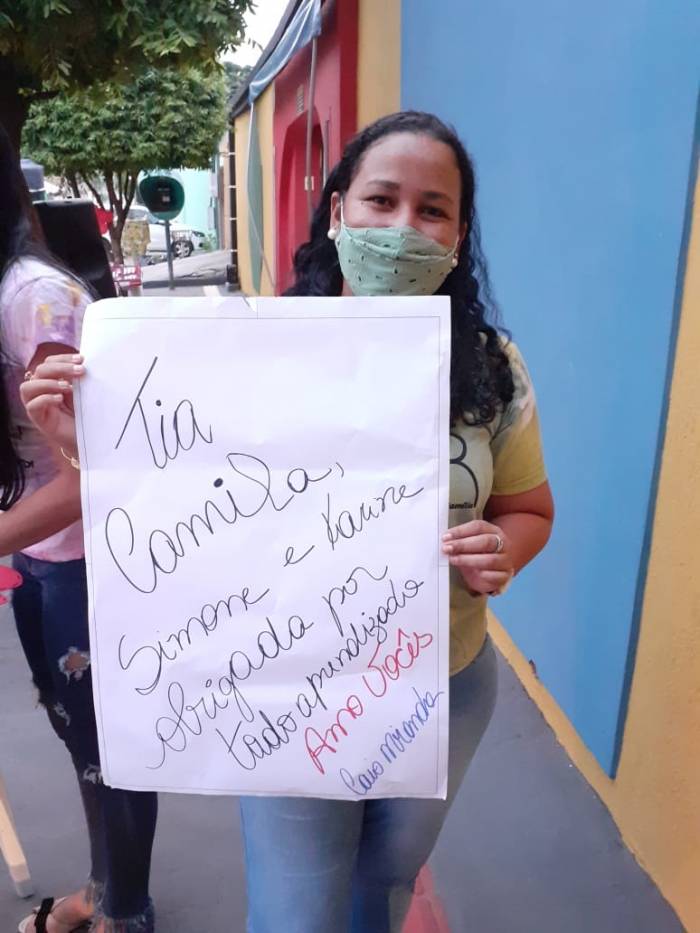 Tia
Camila,
Simone e Karine
obrigada por
tudo aprendizado
Amo Vocês
Caio Miranda